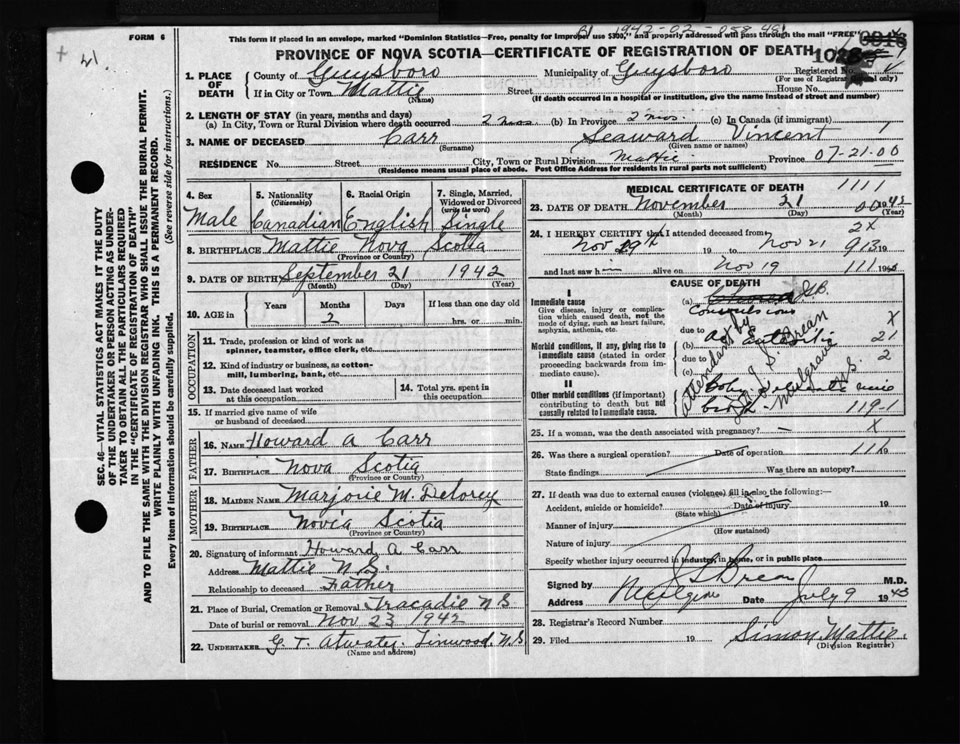 FORM 6
This form if placed in an envelope, marked "Dominion Statistics—Free, penalty for improper use $300," and properly addressed will pass through the mail "FREE"
PROVINCE OF NOVA SCOTIA—CERTIFICATE OF REGISTRATION OF DEATH
1. PLACE OF DEATH
County of Guysboro Municipality of Guysboro Registered No.
(For use of Registrar General only)
If in City or Town Mattie Street House No.
(Name) (If death occurred in a hospital or institution, give the name instead of street and number)
2. LENGTH OF STAY (in years, months and days)
(a) In City, Town or Rural Division where death occurred 2 mos. (b) In Province 2 mos. (c) In Canada (if immigrant)
3. NAME OF DECEASED Carr Seaward Vincent 1
(Surname) (Given name or names)
RESIDENCE No. Street City, Town or Rural Division Mattie Province 07-21-00
(Residence means usual place of abode. Post Office Address for residents in rural parts not sufficient)
4. Sex Male
5. Nationality (Citizenship) Canadian
6. Racial Origin English
7. Single, Married, Widowed or Divorced (write the word) Single
8. BIRTHPLACE Mattie Nova Scotia
(Province or Country)
9. DATE OF BIRTH September 21 1942
(Month) (Day) (Year)
10. AGE in Years Months Days If less than one day old
2 hrs. or min.
OCCUPATION
11. Trade, profession or kind of work as spinner, teamster, office clerk, etc.
12. Kind of industry or business, as cotton-mill, lumbering, bank, etc.
13. Date deceased last worked at this occupation
14. Total yrs. spent in this occupation
15. If married give name of wife or husband of deceased
FATHER
16. NAME Howard A Carr
17. BIRTHPLACE Nova Scotia
(Province or Country)
MOTHER
18. MAIDEN NAME Marjorie M. Delorey
19. BIRTHPLACE Novia Scotia
(Province or Country)
20. Signature of informant Howard A Carr
Address Mattie N S.
Relationship to deceased Father
21. Place of Burial, Cremation or Removal Tracadie N S
Date of burial or removal Nov 23 1942
22. UNDERTAKER G. T. Atwater Linwood, N S
(Name and address)
MEDICAL CERTIFICATE OF DEATH 1111
23. DATE OF DEATH November 21 1942
(Month) (Day) (Year)
24. I HEREBY CERTIFY that I attended deceased from
Nov 19th 19 to Nov 21 19
and last saw him alive on Nov 19 19
CAUSE OF DEATH
I
Immediate cause
Give disease, injury or complication which caused death, not the mode of dying, such as heart failure, asphyxia, asthenia, etc.
(a) Convulsions
due to
Morbid conditions, if any, giving rise to immediate cause (stated in order proceeding backwards from immediate cause).
(b)
due to
(c)
II
Other morbid conditions (if important) contributing to death but not causally related to immediate cause.
119-1
25. If a woman, was the death associated with pregnancy?
26. Was there a surgical operation? Date of operation 19
State findings Was there an autopsy?
27. If death was due to external causes (violence) fill in also the following:—
Accident, suicide or homicide? Date of injury 19
(State which)
Manner of injury
(How sustained)
Nature of injury
Specify whether injury occurred in industry, in home, or in public place
Signed by M.D.
Address Date July 9 1943
28. Registrar's Record Number
29. Filed 19 Simon Mattie
(Division Registrar)
SEC. 46—VITAL STATISTICS ACT MAKES IT THE DUTY
OF THE UNDERTAKER OR PERSON ACTING AS UNDER-
TAKER TO OBTAIN ALL THE PARTICULARS REQUIRED
IN THE "CERTIFICATE OF REGISTRATION OF DEATH"
AND TO FILE THE SAME WITH THE DIVISION REGISTRAR WHO SHALL ISSUE THE BURIAL PERMIT.
WRITE PLAINLY WITH UNFADING INK. THIS IS A PERMANENT RECORD.
Every item of information should be carefully supplied. (See reverse side for instructions.)